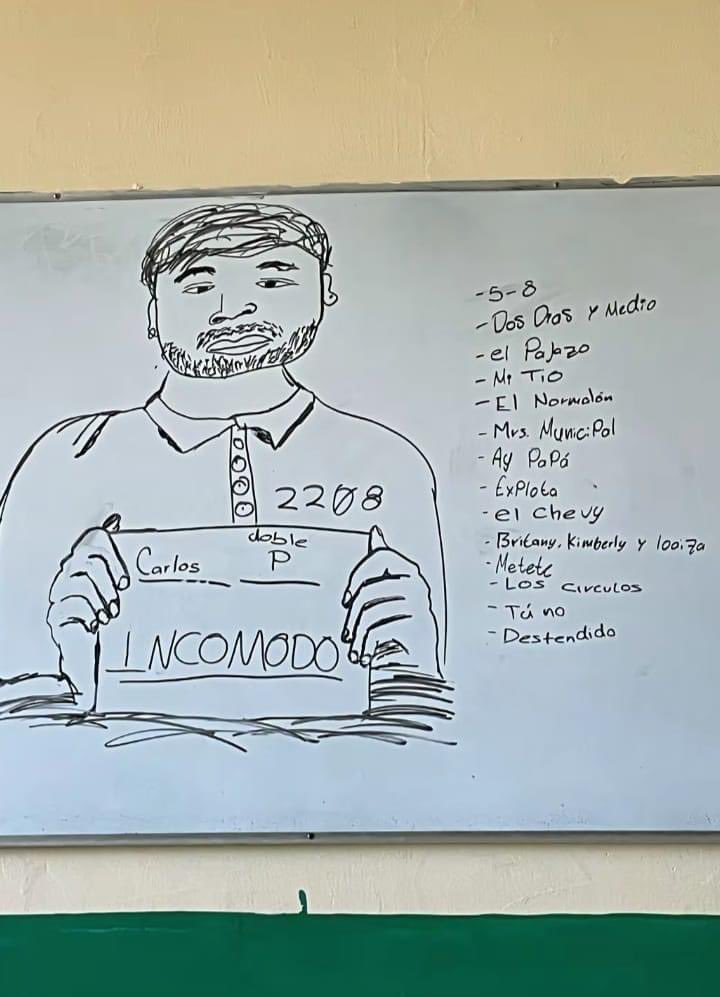 2208
Carlos
doble
P
INCOMODO
-5-8
-Dos Dias y Medio
-el Pajazo
-Mi Tio
-El Normalón
-Mrs. Municipal
-Ay Papá
-Explota
-el chevy
-Britany, Kimberly y looiza
-Metete
-Los Circulos
-Tú no
-Destendido